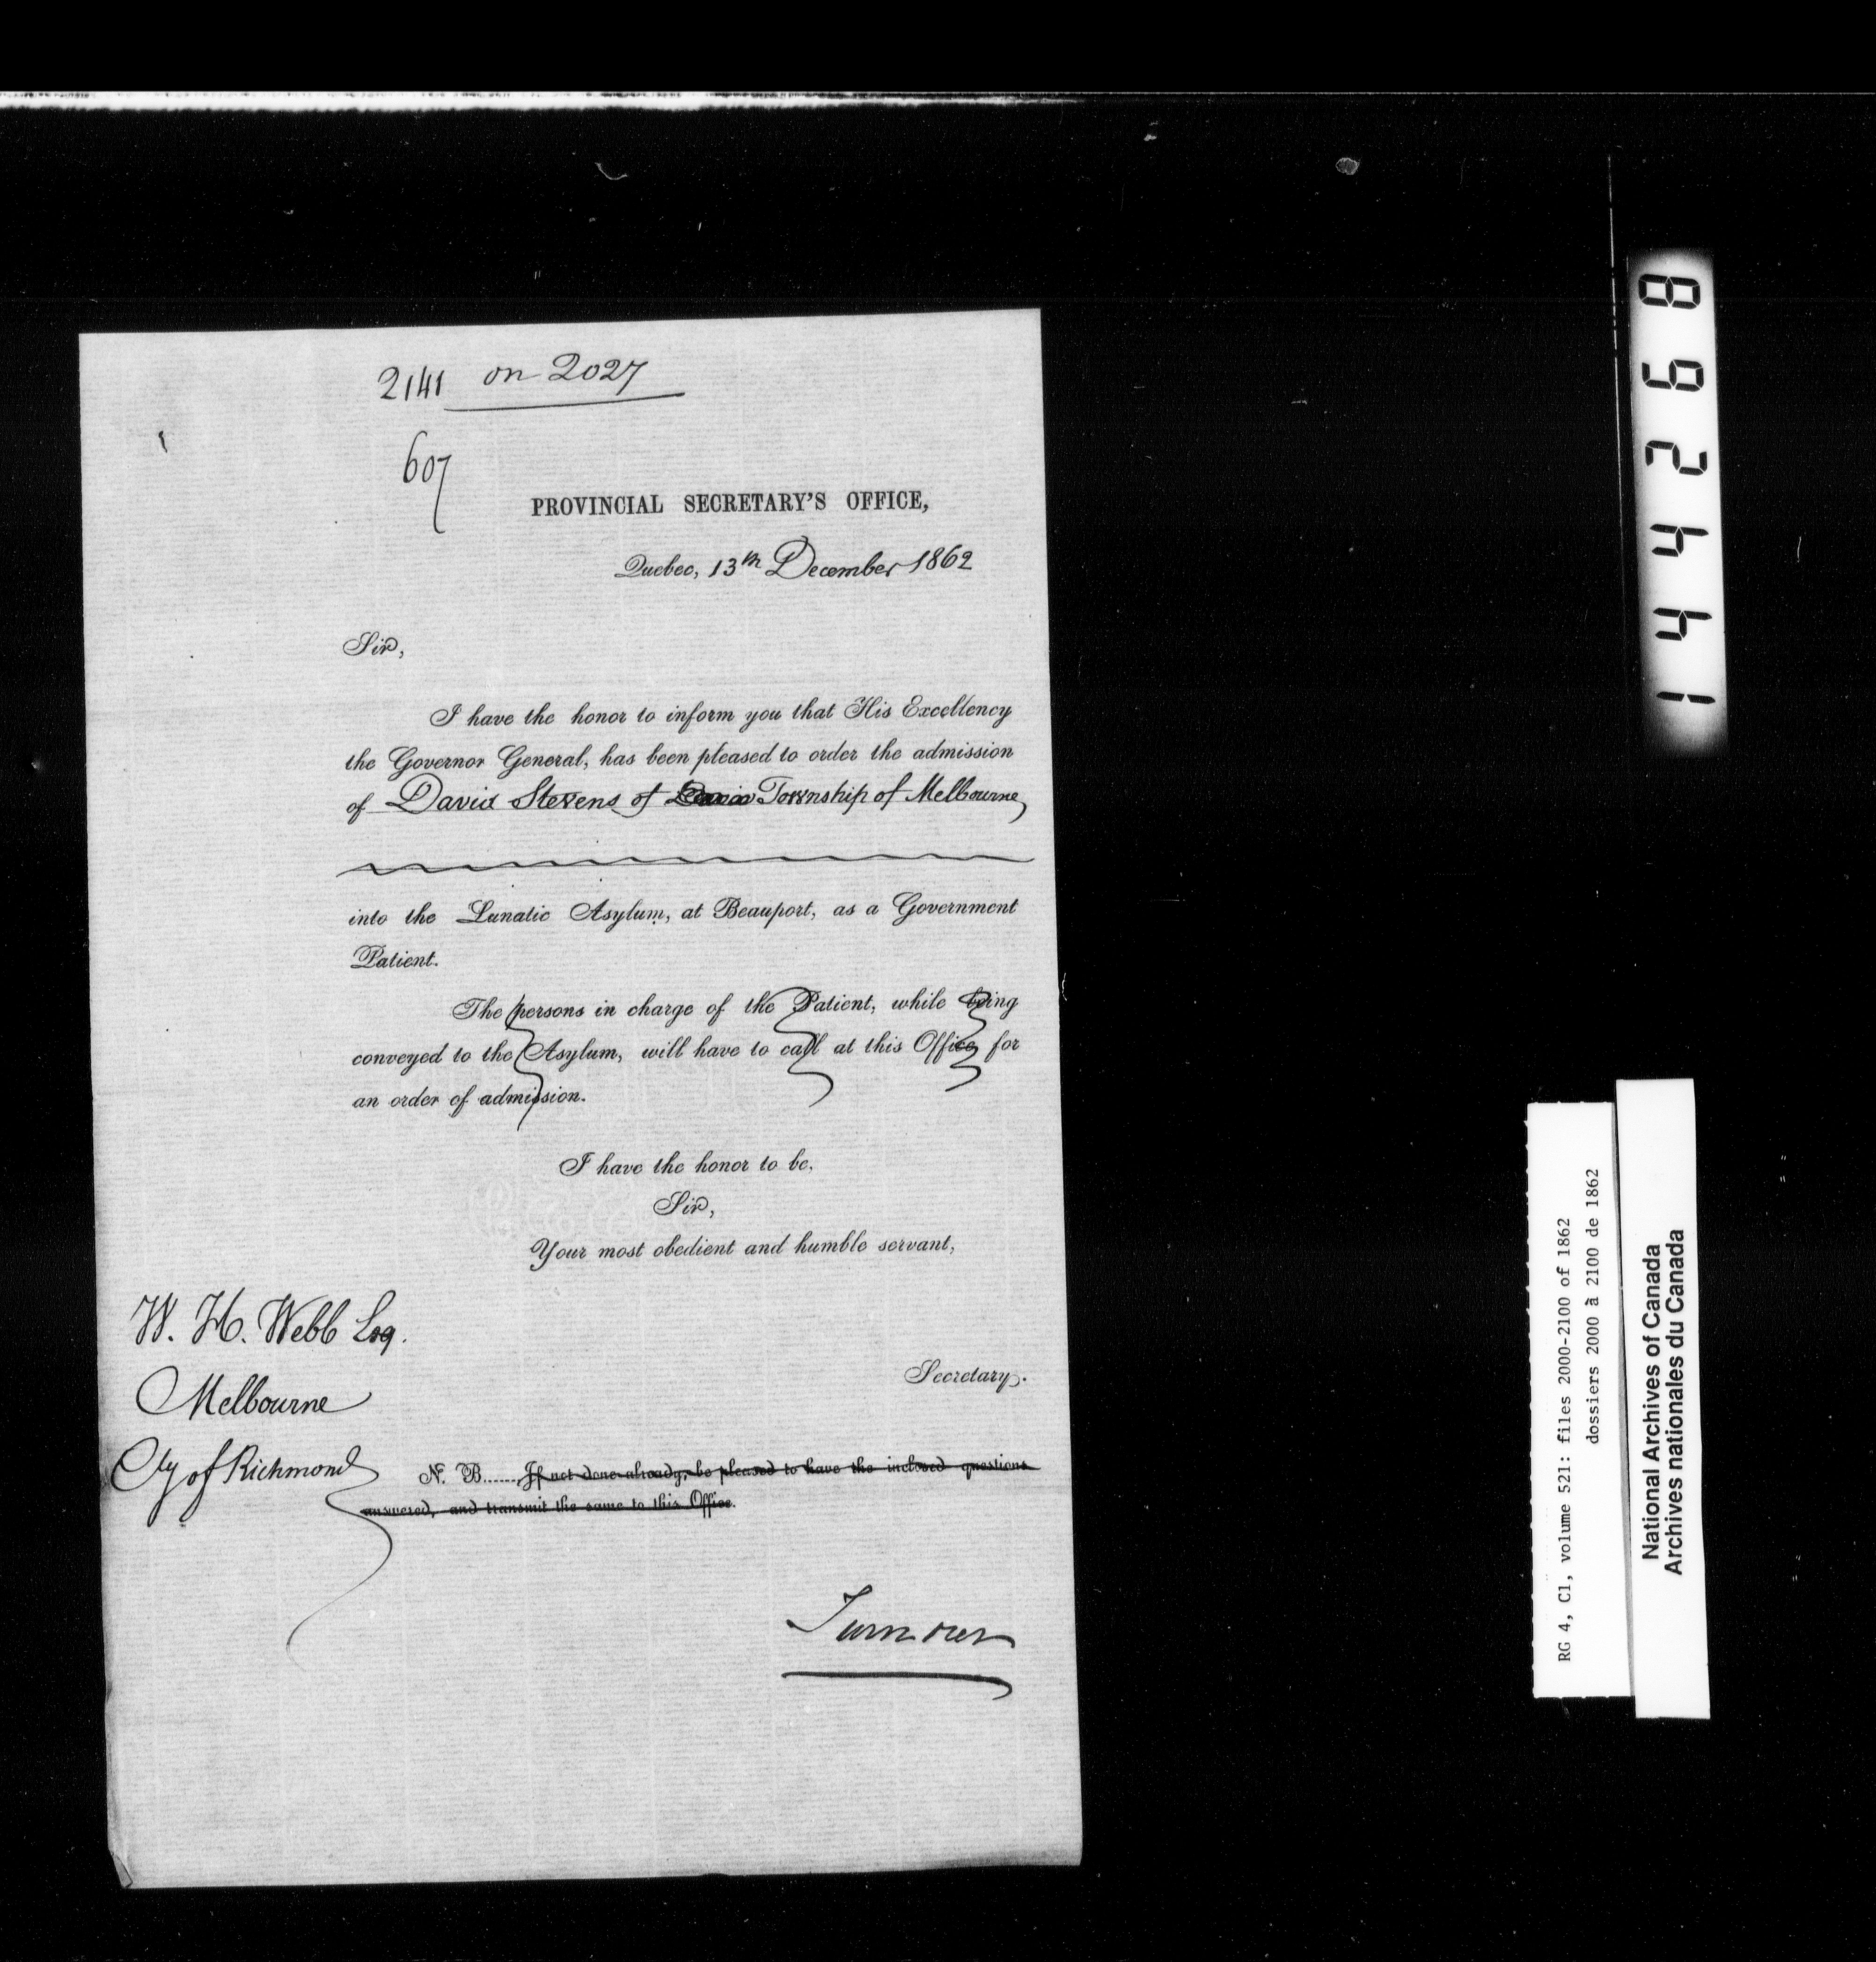 2141 on 2027
607
PROVINCIAL SECRETARY'S OFFICE,
Quebec, 13th December 1862
Sir,
I have the honor to inform you that His Excellency
the Governor General, has been pleased to order the admission
of David Stevens of Township of Melbourne,
into the Lunatic Asylum, at Beauport, as a Government
Patient.
The persons in charge of the Patient, while being
conveyed to the Asylum, will have to call at this Office for
an order of admission.
I have the honor to be,
Sir,
Your most obedient and humble servant,
W. H. Webb Esq.
Secretary.
Melbourne
Cty of Richmond
N. B......If not done already, be pleased to have the inclosed questions
answered, and transmit the same to this Office.
Turn over
144268
RG 4, C1, volume 521: files 2000-2100 of 1862
dossiers 2000 à 2100 de 1862
National Archives of Canada
Archives nationales du Canada